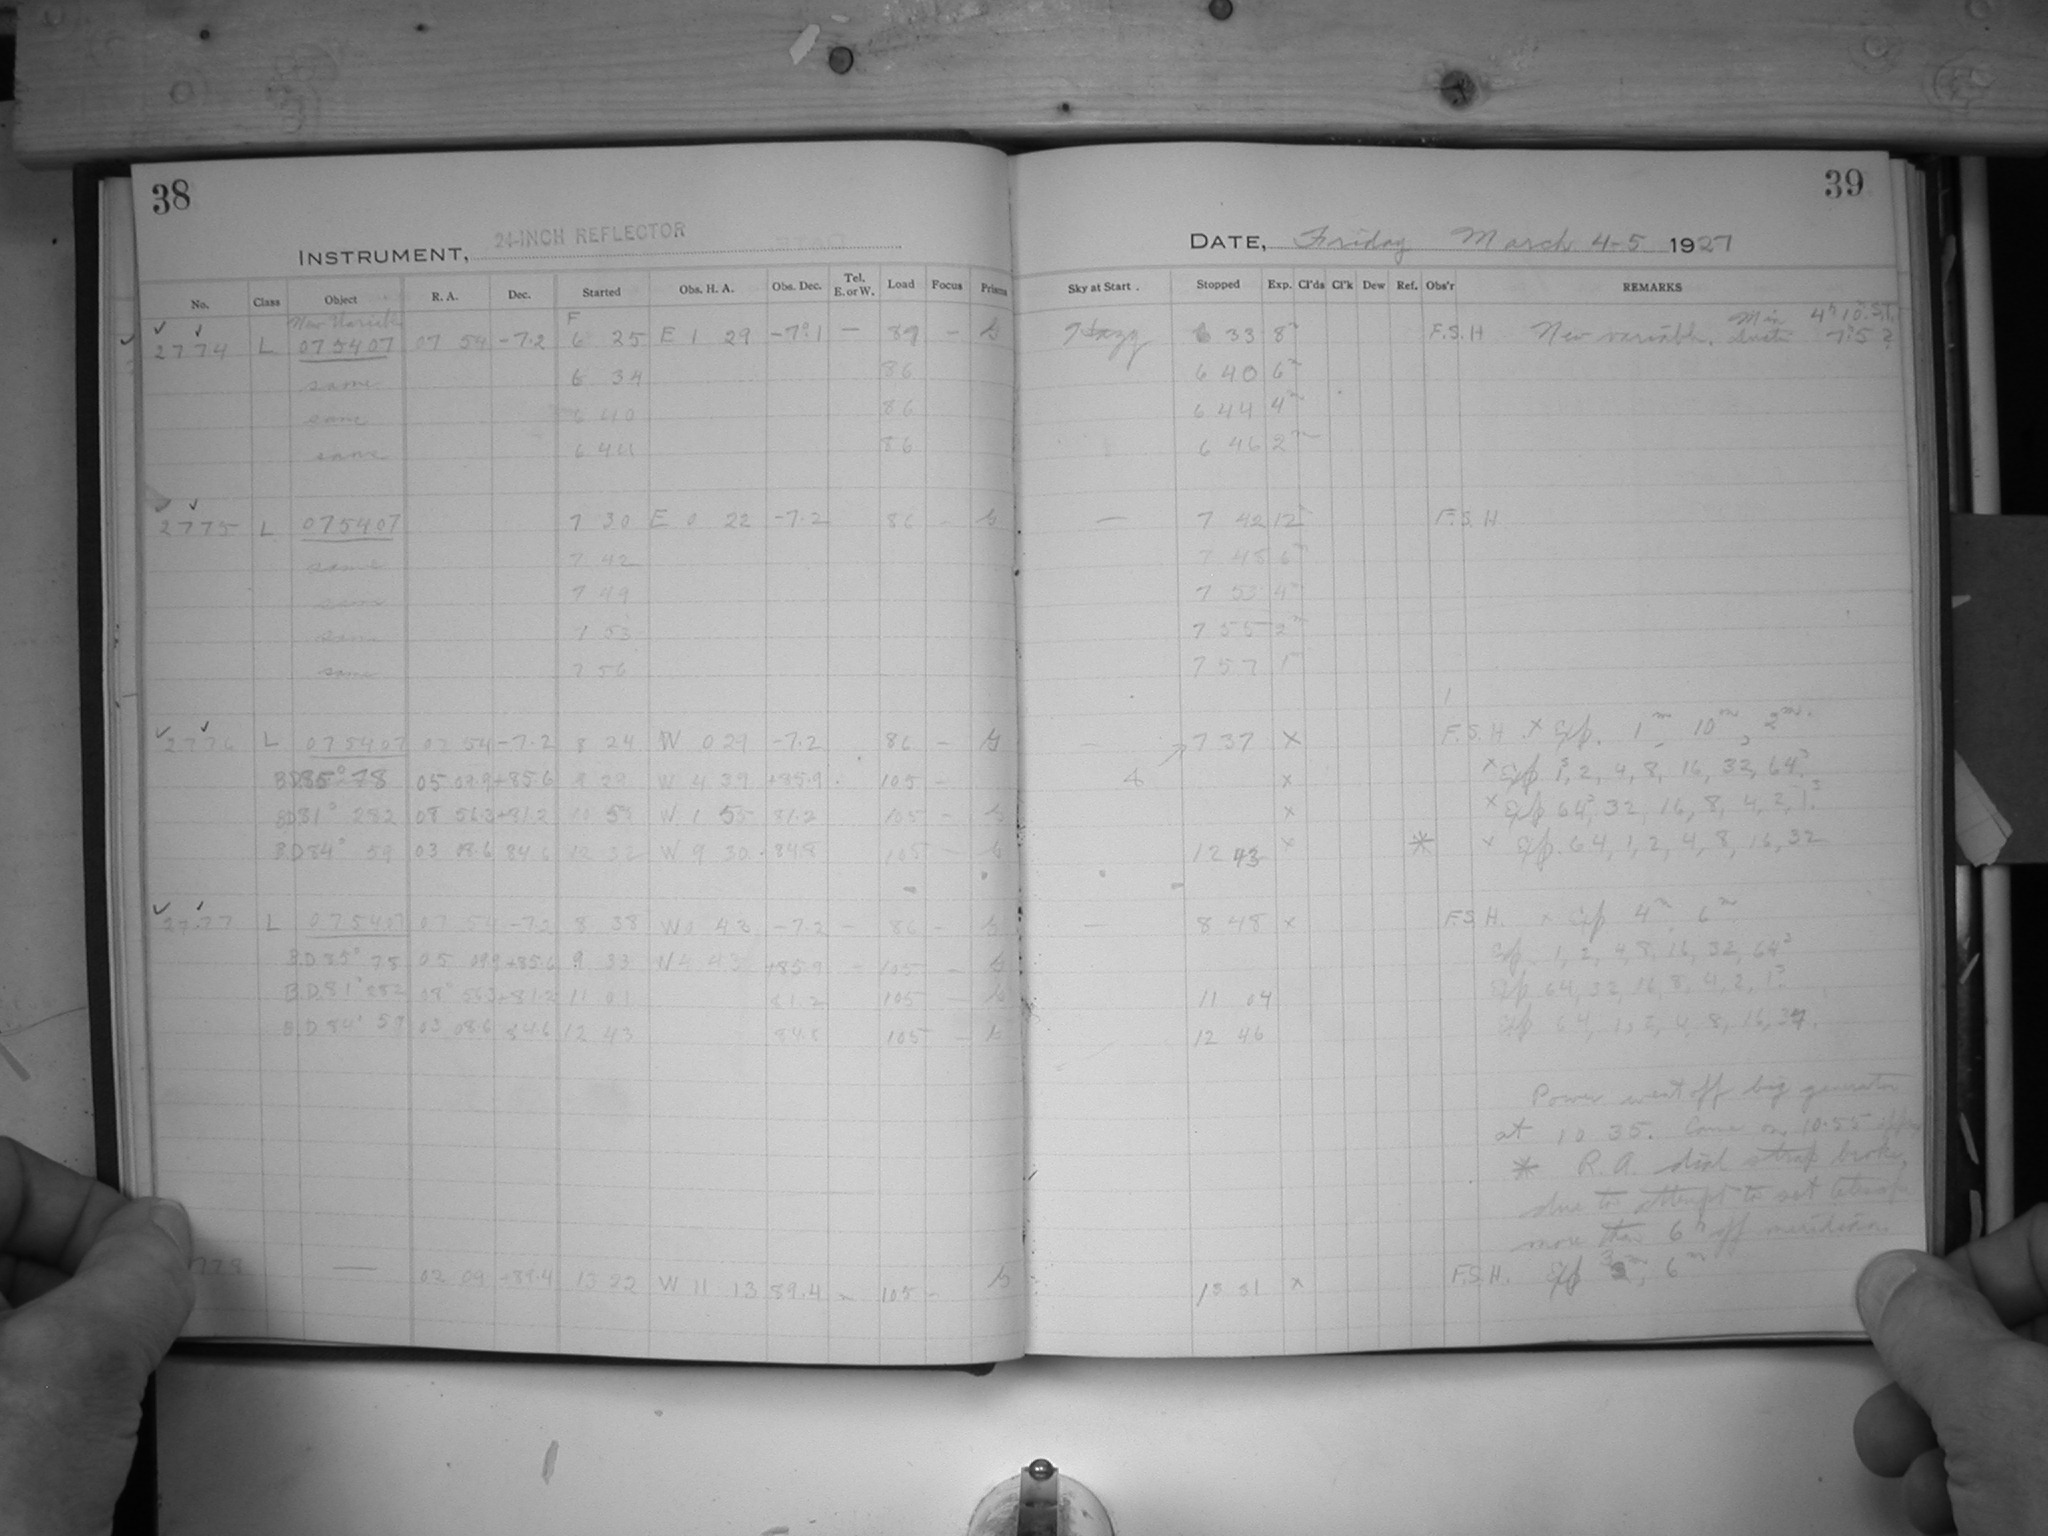 38
INSTRUMENT, 24-INCH REFLECTOR
No. Class Object R. A. Dec. Started Obs. H. A. Obs. Dec. Tel. E. or W. Load Focus Prisms
2774 L 075407 07 54 -7.2 6 25 E 1 29 -7°.1 — 89 -
same 6 34 86
same 6 40 86
same 6 44 86
2775 L 075407 7 30 E 0 22 -7.2 86 -
same 7 42
same 7 49
same 7 53
same 7 56
2776 L 075407 07 54 -7.2 8 24 W 0 29 -7.2 86 -
BD85° 78 05 09.9 +85.6 9 29 W 4 39 +85.9 105 -
BD81° 282 08 56.3 +81.2 10 59 W 1 55 81.2 105 -
BD84° 59 03 08.6 84.6 12 32 W 9 30 84.8 105 -
2777 L 075407 07 54 -7.2 8 38 W 0 43 -7.2 - 86 -
B.D 85° 78 05 099 +85.6 9 33 W 4 43 +85.9 - 105 -
B.D.81° 282 08 563 +81.2 11 01 81.2 105 -
B.D 84° 59 03 08.6 84.6 12 43 84.8 105 -
— 02 09 +89.4 13 22 W 11 13 89.4 - 105 -
39
DATE, Friday March 4-5 1927
Sky at Start. Stopped Exp. Cl'ds Cl'k Dew Ref. Obs'r REMARKS
Hazy 6 33 8m F.S.H New variable.
6 40 6m
6 44 4m
6 46 2m
— 7 42 12 F.S.H
7 48 6m
7 53 4m
7 55 2m
7 57 1
- 7 37 x F.S.H. x Exp. 1m, 10m, 2m.
x x Exp 1s, 2, 4, 8, 16, 32, 64s
x x Exp 64s, 32, 16, 8, 4, 2, 1s
12 43 x * x Exp. 64, 1, 2, 4, 8, 16, 32
— 8 48 x F.S.H. x Exp 4m, 6m
Exp. 1, 2, 4, 8, 16, 32, 64s
11 04 Exp 64, 32, 16, 8, 4, 2, 1s
12 46 Exp 64, 1, 2, 4, 8, 16, 32.
Power went off big generator
at 10 35. Came on 10.55
* R.A. dial strap broke,
due to attempt to set
more than 6h off meridian.
x F.S.H. Exp 3m, 6m